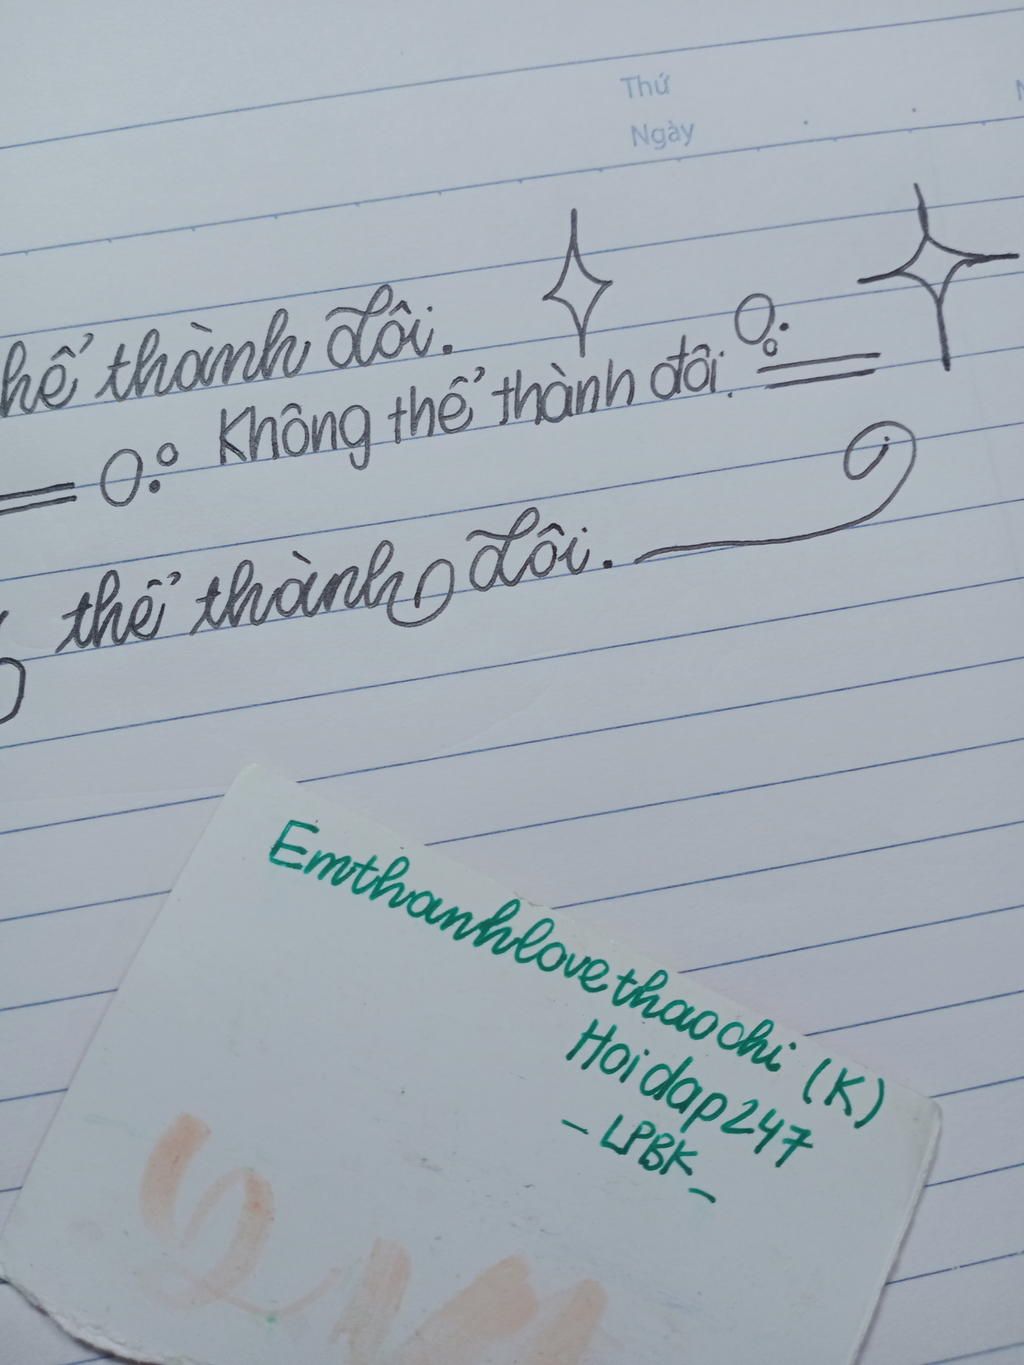 Thứ
Ngày
hể thành đôi.
Không thể thành đôi.
thể thành đôi.
Emthanhlovethaochi (K)
Hoidap247
- LPBK -